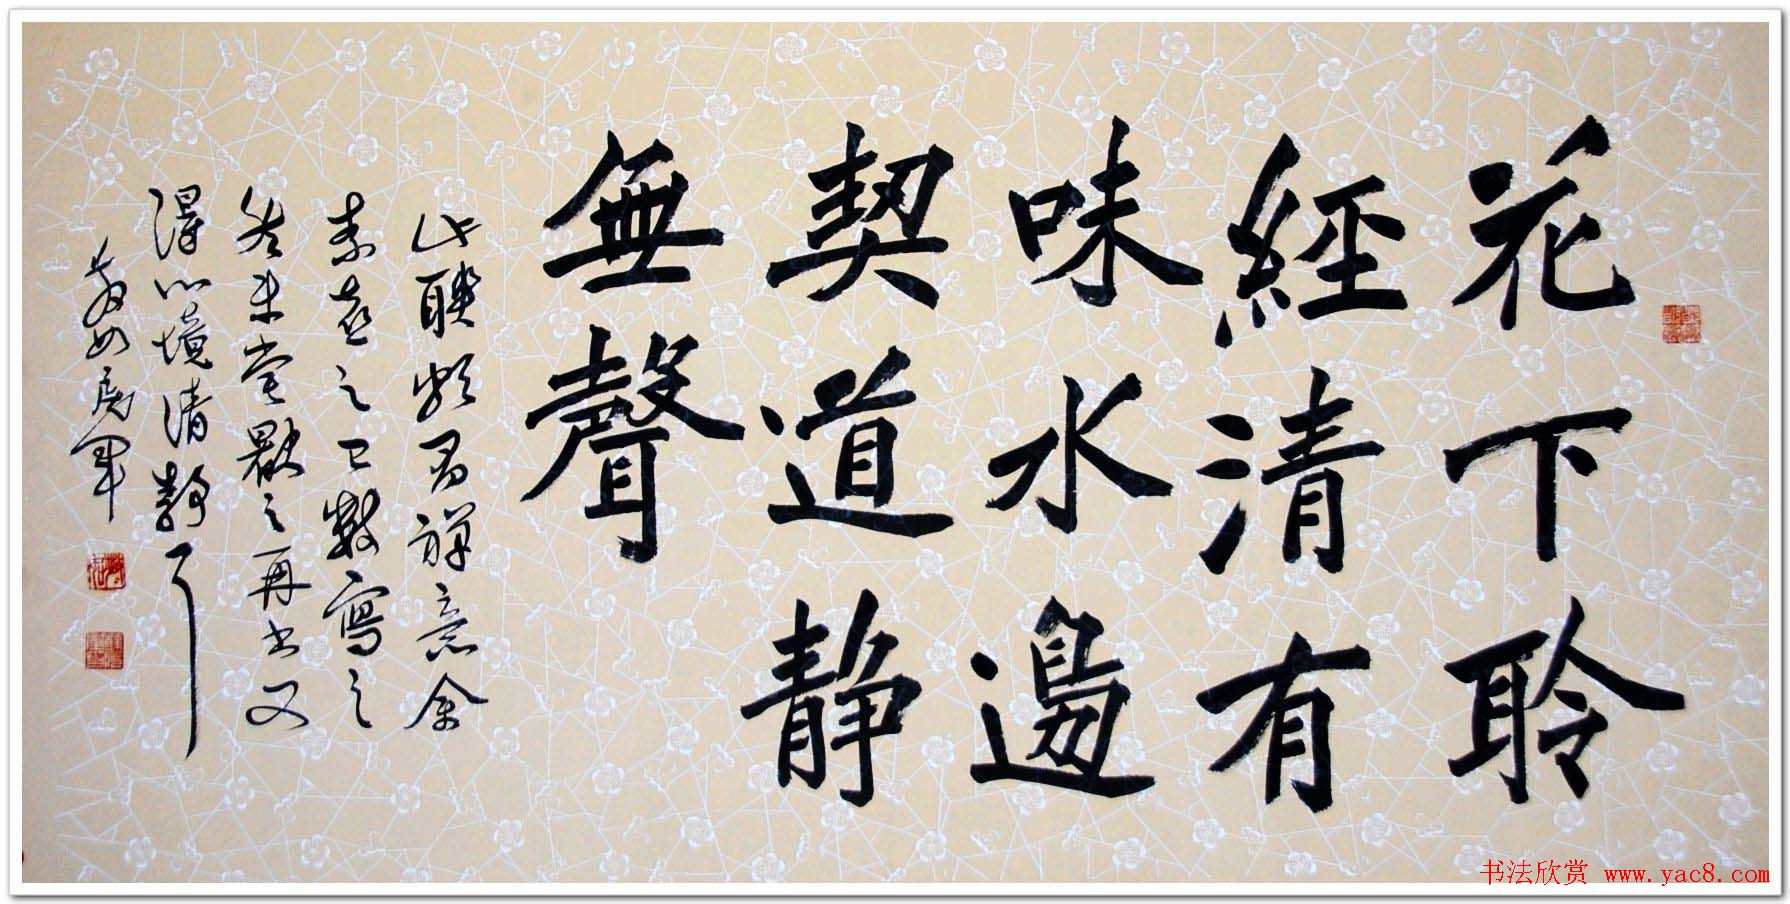 花下聆
經清有
味水邊
契道静
無聲
此聯頗有禪意余
素喜之已數寫之
然未嘗厭之再書又
得心境清静耳
书法欣赏 www.yac8.com